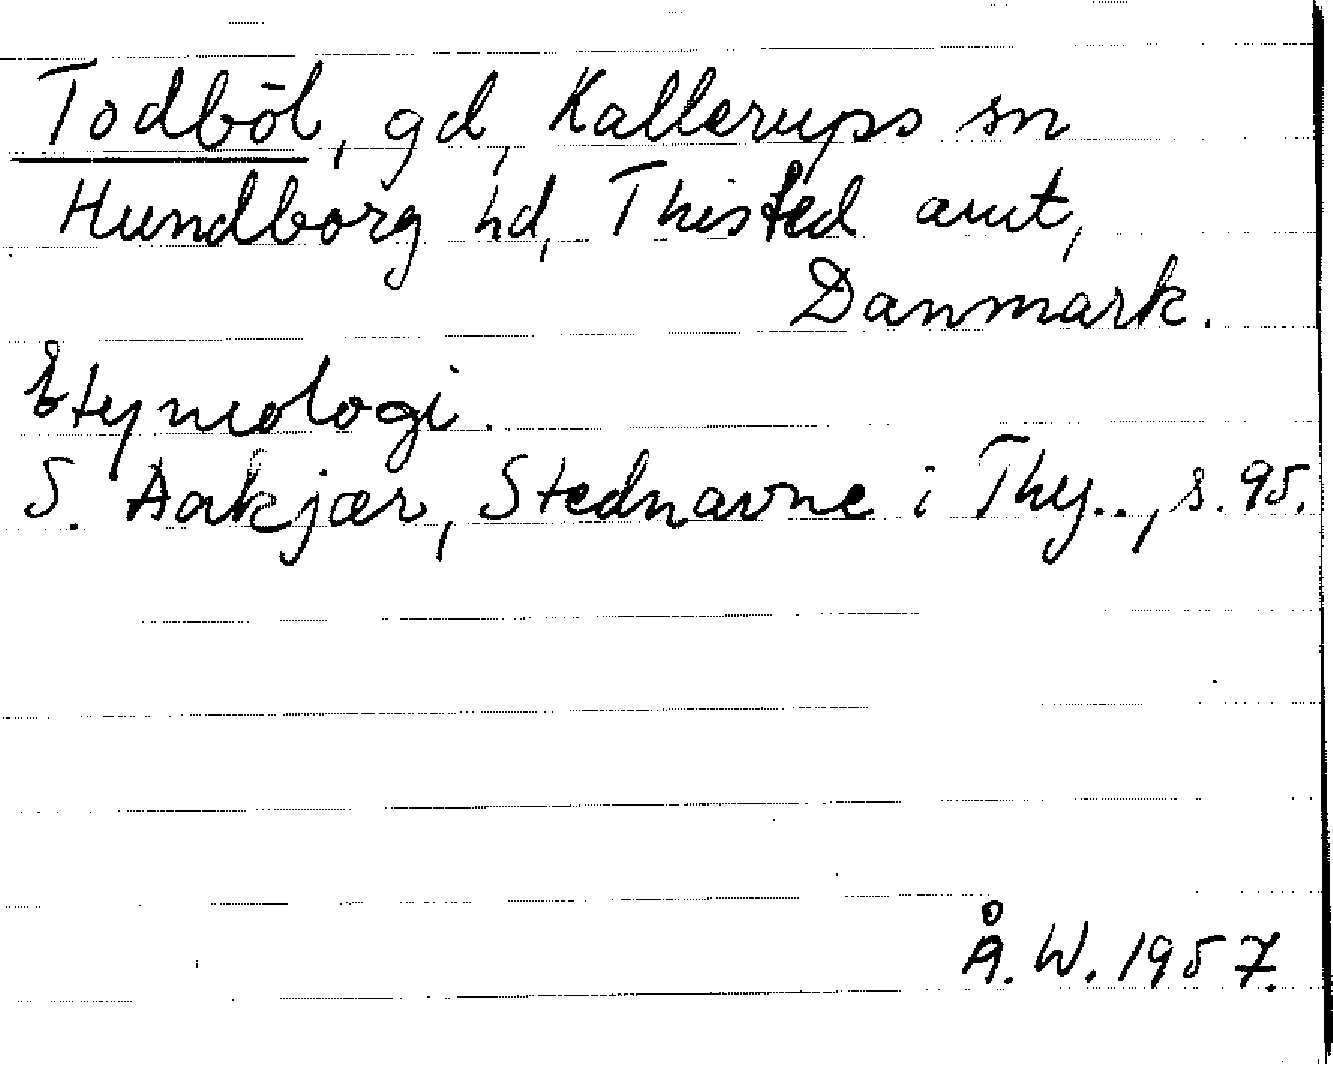 Todböl, gd, Kallerups sn
Hundborg hd, Thisted amt,
Danmark.
Etymologi.
S. Aakjær, Stednavne i Thy.., s. 95.
Å. W. 1957.